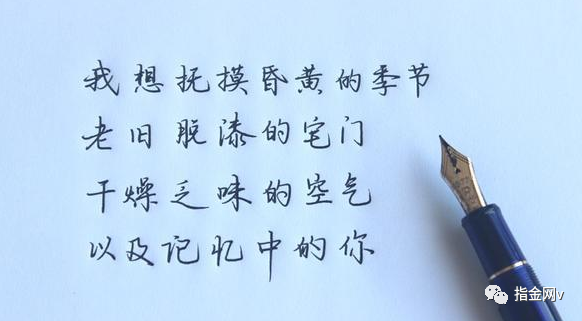 我想抚摸昏黄的季节
老旧脱漆的宅门
干燥乏味的空气
以及记忆中的你
指金网v